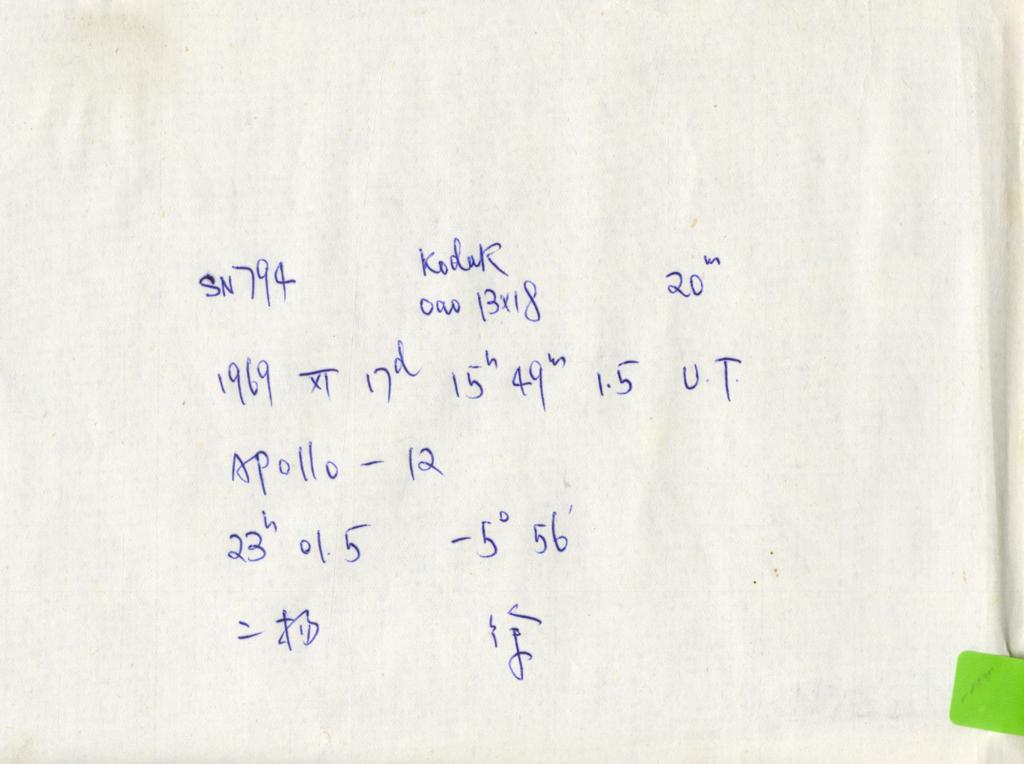 SN794 Kodak 20ᵐ
0a0 13x18
1969 XI 17ᵈ 15ʰ 49ᵐ 1.5 U.T.
Apollo - 12
23ʰ 01.5 -5° 56'